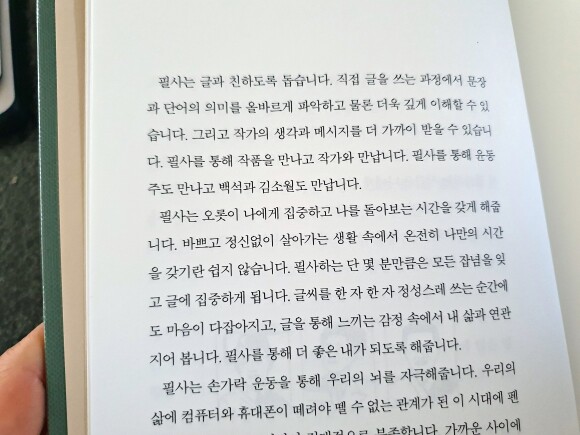 필사는 글과 친하도록 돕습니다. 직접 글을 쓰는 과정에서 문장
과 단어의 의미를 올바르게 파악하고 물론 더욱 깊게 이해할 수 있
습니다. 그리고 작가의 생각과 메시지를 더 가까이 받을 수 있습니
다. 필사를 통해 작품을 만나고 작가와 만납니다. 필사를 통해 윤동
주도 만나고 백석과 김소월도 만납니다.
필사는 오롯이 나에게 집중하고 나를 돌아보는 시간을 갖게 해줍
니다. 바쁘고 정신없이 살아가는 생활 속에서 온전히 나만의 시간
을 갖기란 쉽지 않습니다. 필사하는 단 몇 분만큼은 모든 잡념을 잊
고 글에 집중하게 됩니다. 글씨를 한 자 한 자 정성스레 쓰는 순간에
도 마음이 다잡아지고, 글을 통해 느끼는 감정 속에서 내 삶과 연관
지어 봅니다. 필사를 통해 더 좋은 내가 되도록 해줍니다.
필사는 손가락 운동을 통해 우리의 뇌를 자극해줍니다. 우리의
삶에 컴퓨터와 휴대폰이 떼려야 뗄 수 없는 관계가 된 이 시대에 펜
부족합니다. 가까운 사이에